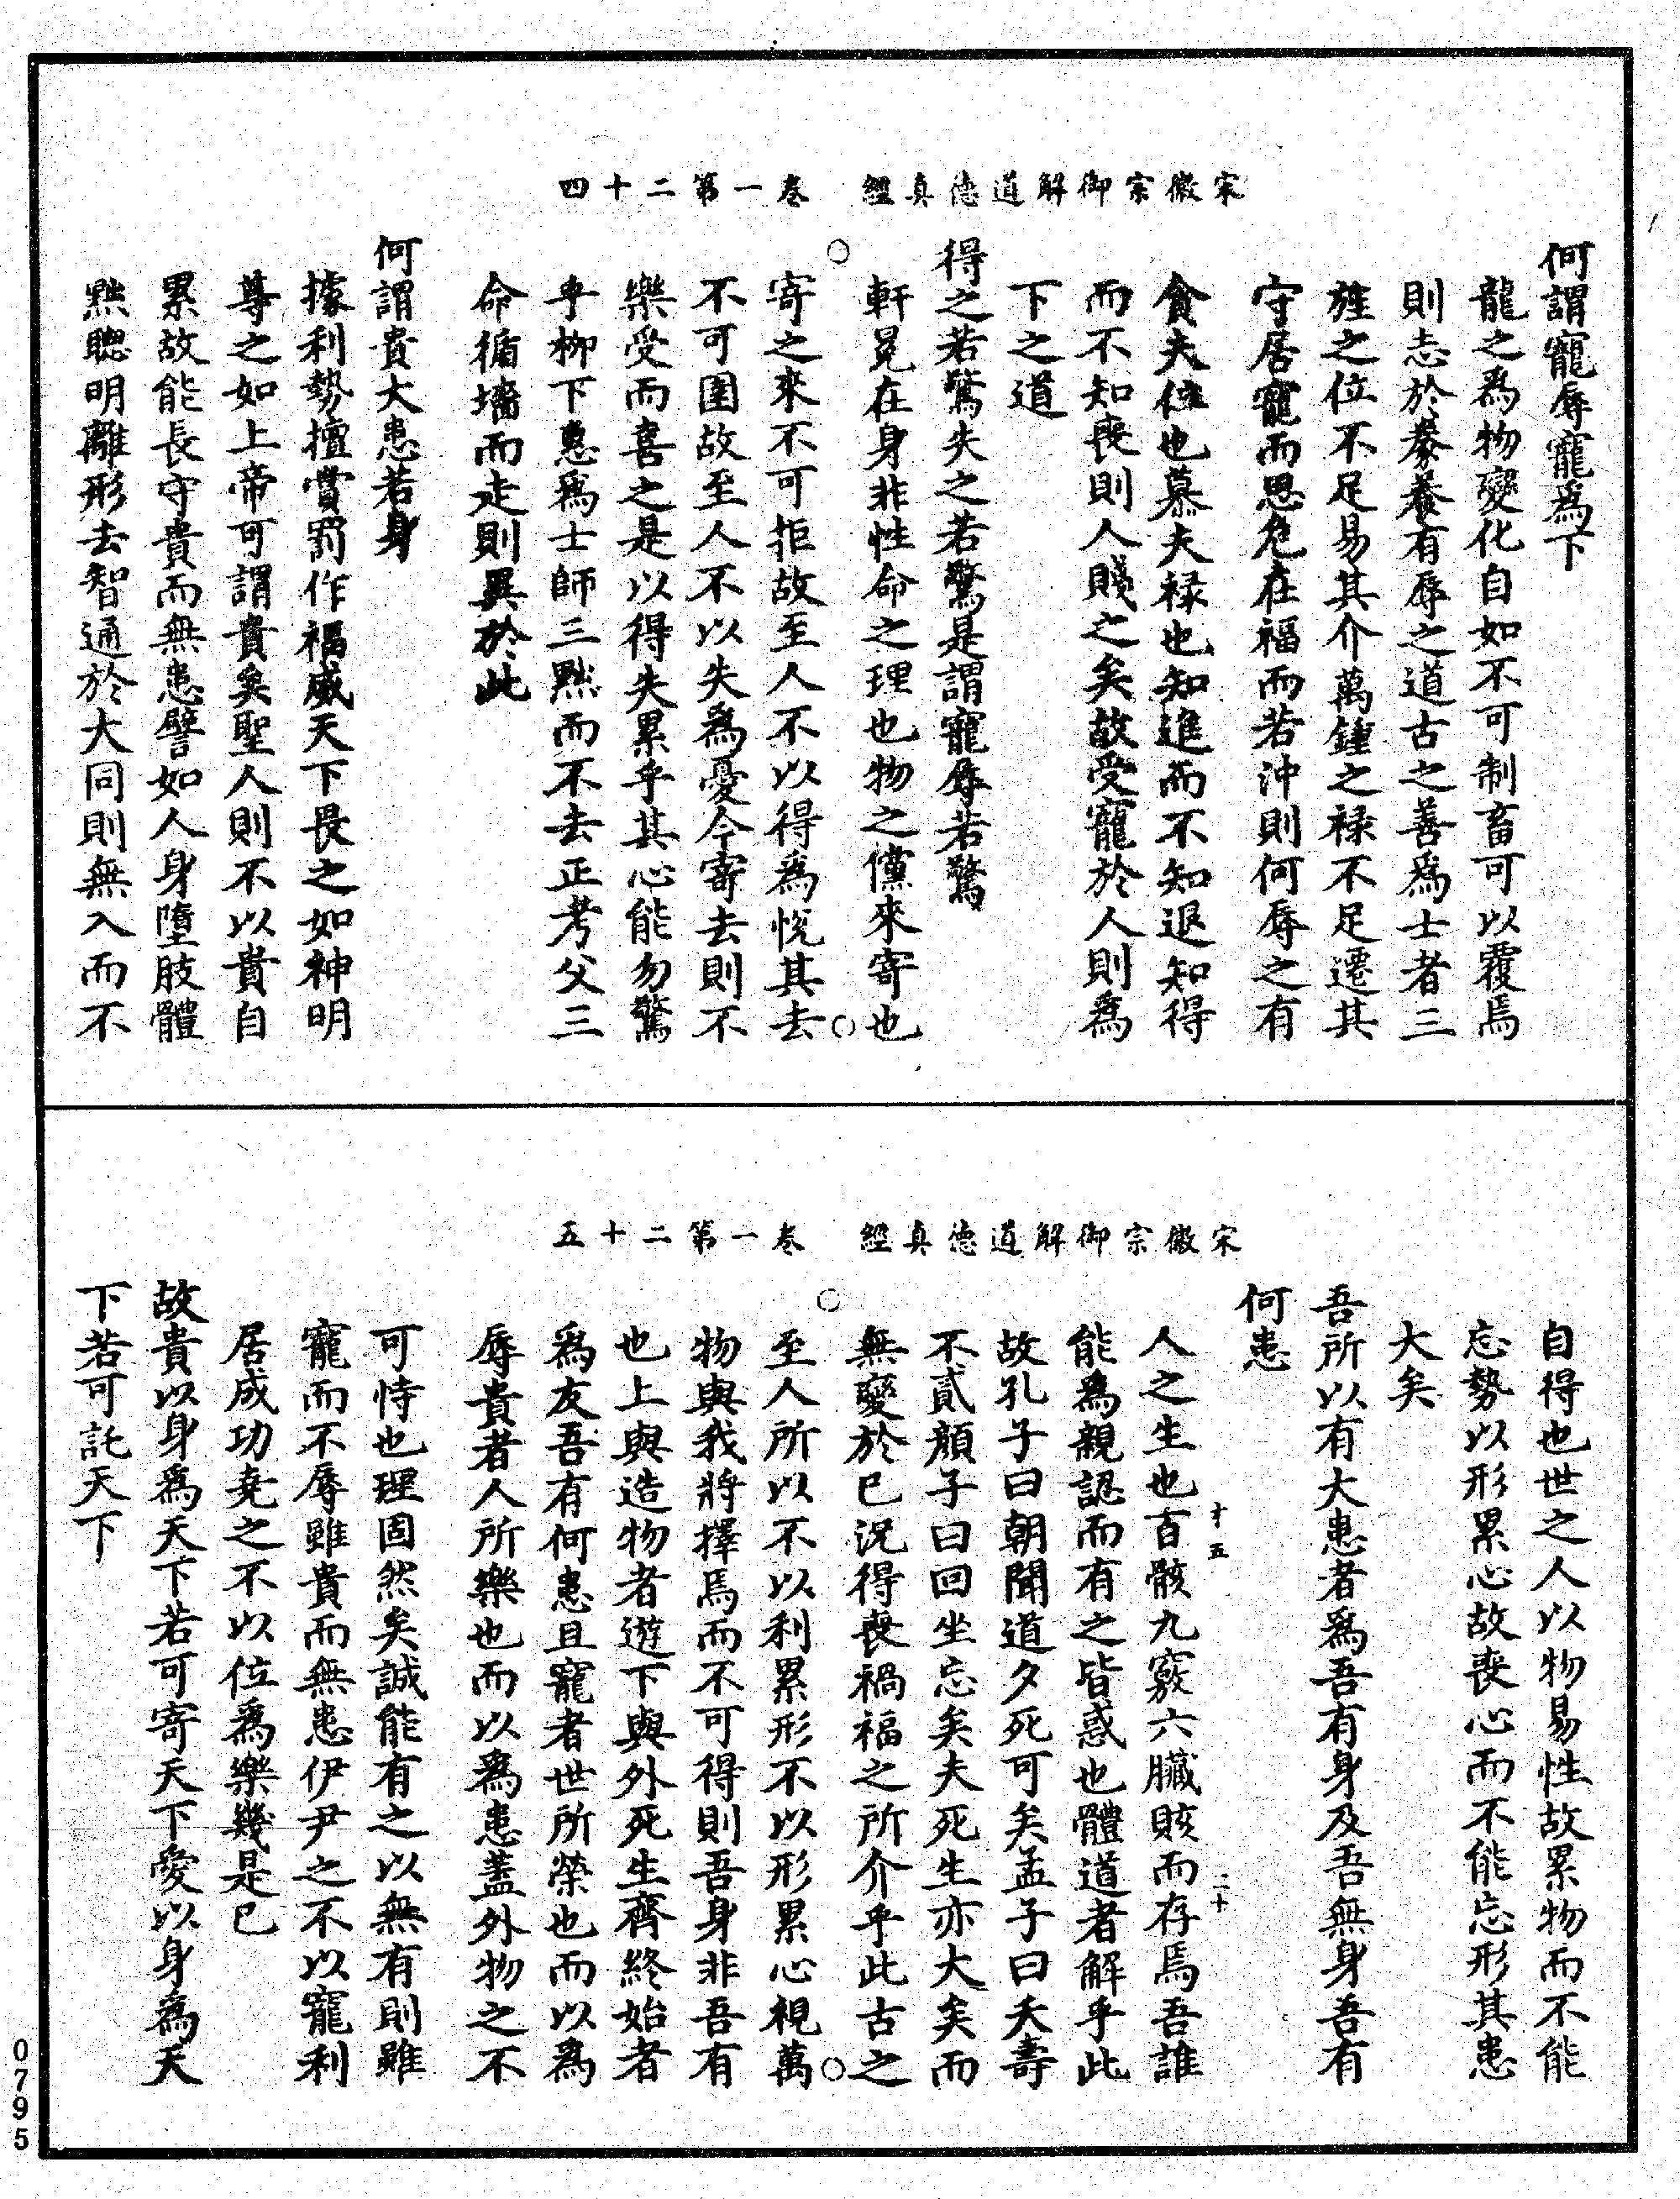 宋徽宗御解道德真經　卷一第二十四
何謂寵辱寵爲下
龍之爲物變化自如不可制畜可以覆焉
則志於豢養有辱之道古之善爲士者三
旌之位不足易其介萬鍾之祿不足遷其
守居寵而思危在福而若沖則何辱之有
貪夫位也慕夫祿也知進而不知退知得
而不知喪則人賤之矣故受寵於人則爲
下之道
得之若驚失之若驚是謂寵辱若驚
軒冕在身非性命之理也物之儻來寄也
寄之來不可拒故至人不以得爲悅其去
不可圉故至人不以失爲憂今寄去則不
樂受而喜之是以得失累乎其心能勿驚
乎柳下惠爲士師三黜而不去正考父三
命循墻而走則異於此
何謂貴大患若身
據利勢擅賞罰作福威天下畏之如神明
尊之如上帝可謂貴矣聖人則不以貴自
累故能長守貴而無患譬如人身墮肢體
黜聰明離形去智通於大同則無入而不
宋徽宗御解道德真經　卷一第二十五
自得也世之人以物易性故累物而不能
忘勢以形累心故喪心而不能忘形其患
大矣
吾所以有大患者爲吾有身及吾無身吾有
何患
十五
二十
人之生也百骸九竅六臟賅而存焉吾誰
能爲親認而有之皆惑也體道者解乎此
故孔子曰朝聞道夕死可矣孟子曰夭壽
不貳顏子曰回坐忘矣夫死生亦大矣而
無變於已況得喪禍福之所介乎此古之
至人所以不以利累形不以形累心視萬
物與我將擇焉而不可得則吾身非吾有
也上與造物者遊下與外死生齊終始者
爲友吾有何患且寵者世所榮也而以爲
辱貴者人所樂也而以爲患蓋外物之不
可恃也理固然矣誠能有之以無有則雖
寵而不辱雖貴而無患伊尹之不以寵利
居成功堯之不以位爲樂幾是已
故貴以身爲天下若可寄天下愛以身爲天
下若可託天下
0795